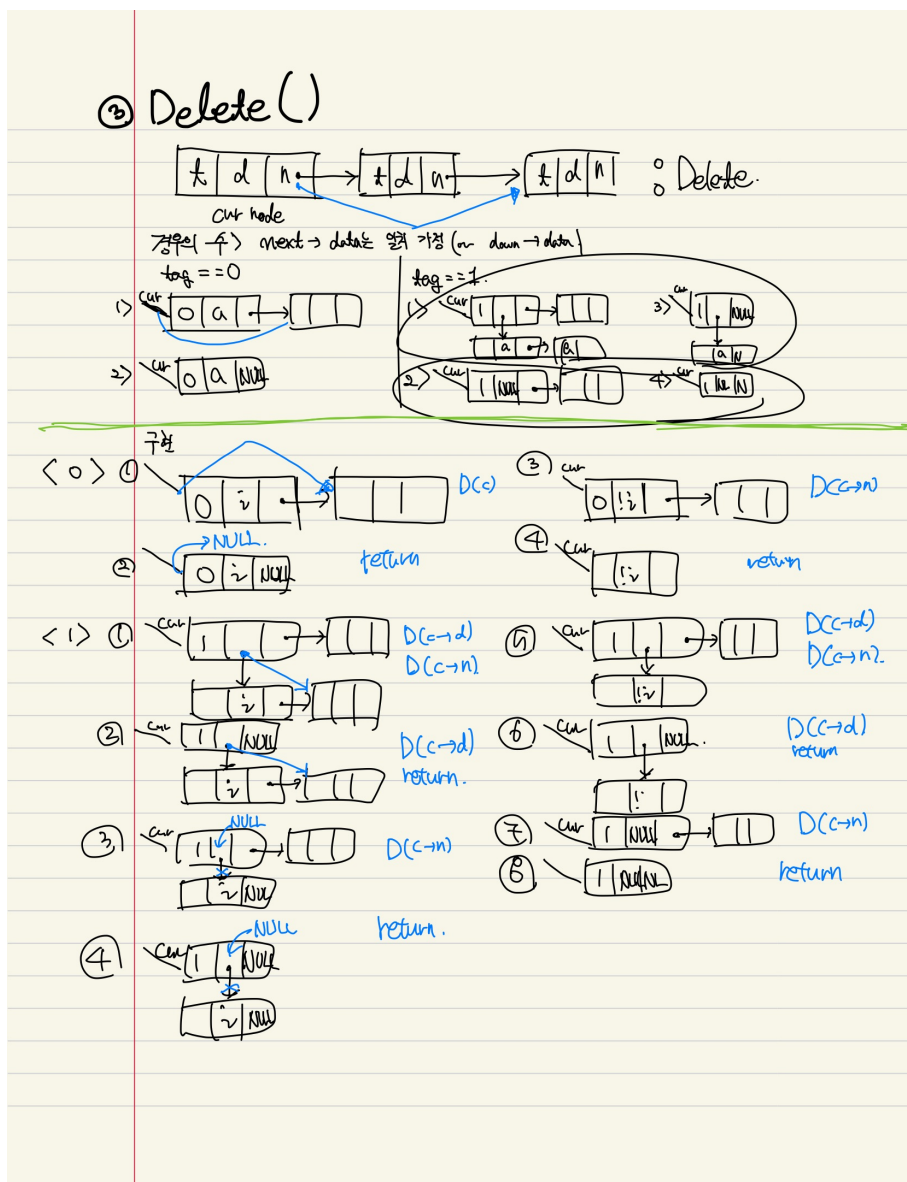 ③ Delete()
t d n t d n t d n : Delete.
cur node
경우의 수> next → data는 일치 가정 (or down → data)
tag == 0
tag == 1.
1> cur 0 a
2> cur 0 a NULL
1> cur 1 a a
3> cur 1 NULL a N
2> cur 1 NULL
4> cur 1 N N
구현
<0> ① 0 i D(c)
② NULL. 0 i NULL return
③ cur 0 !i D(c→n)
④ cur !i return
<1> ① cur 1 i D(c→d)
D(c→n)
② cur 1 NULL i D(c→d)
return.
③ cur NULL 1 i NULL D(c→n)
④ cur NULL 1 NULL i NULL return.
⑤ cur 1 !i D(c→d)
D(c→n).
⑥ cur 1 NULL. !i D(c→d)
return
⑦ cur 1 NULL D(c→n)
⑧ 1 return